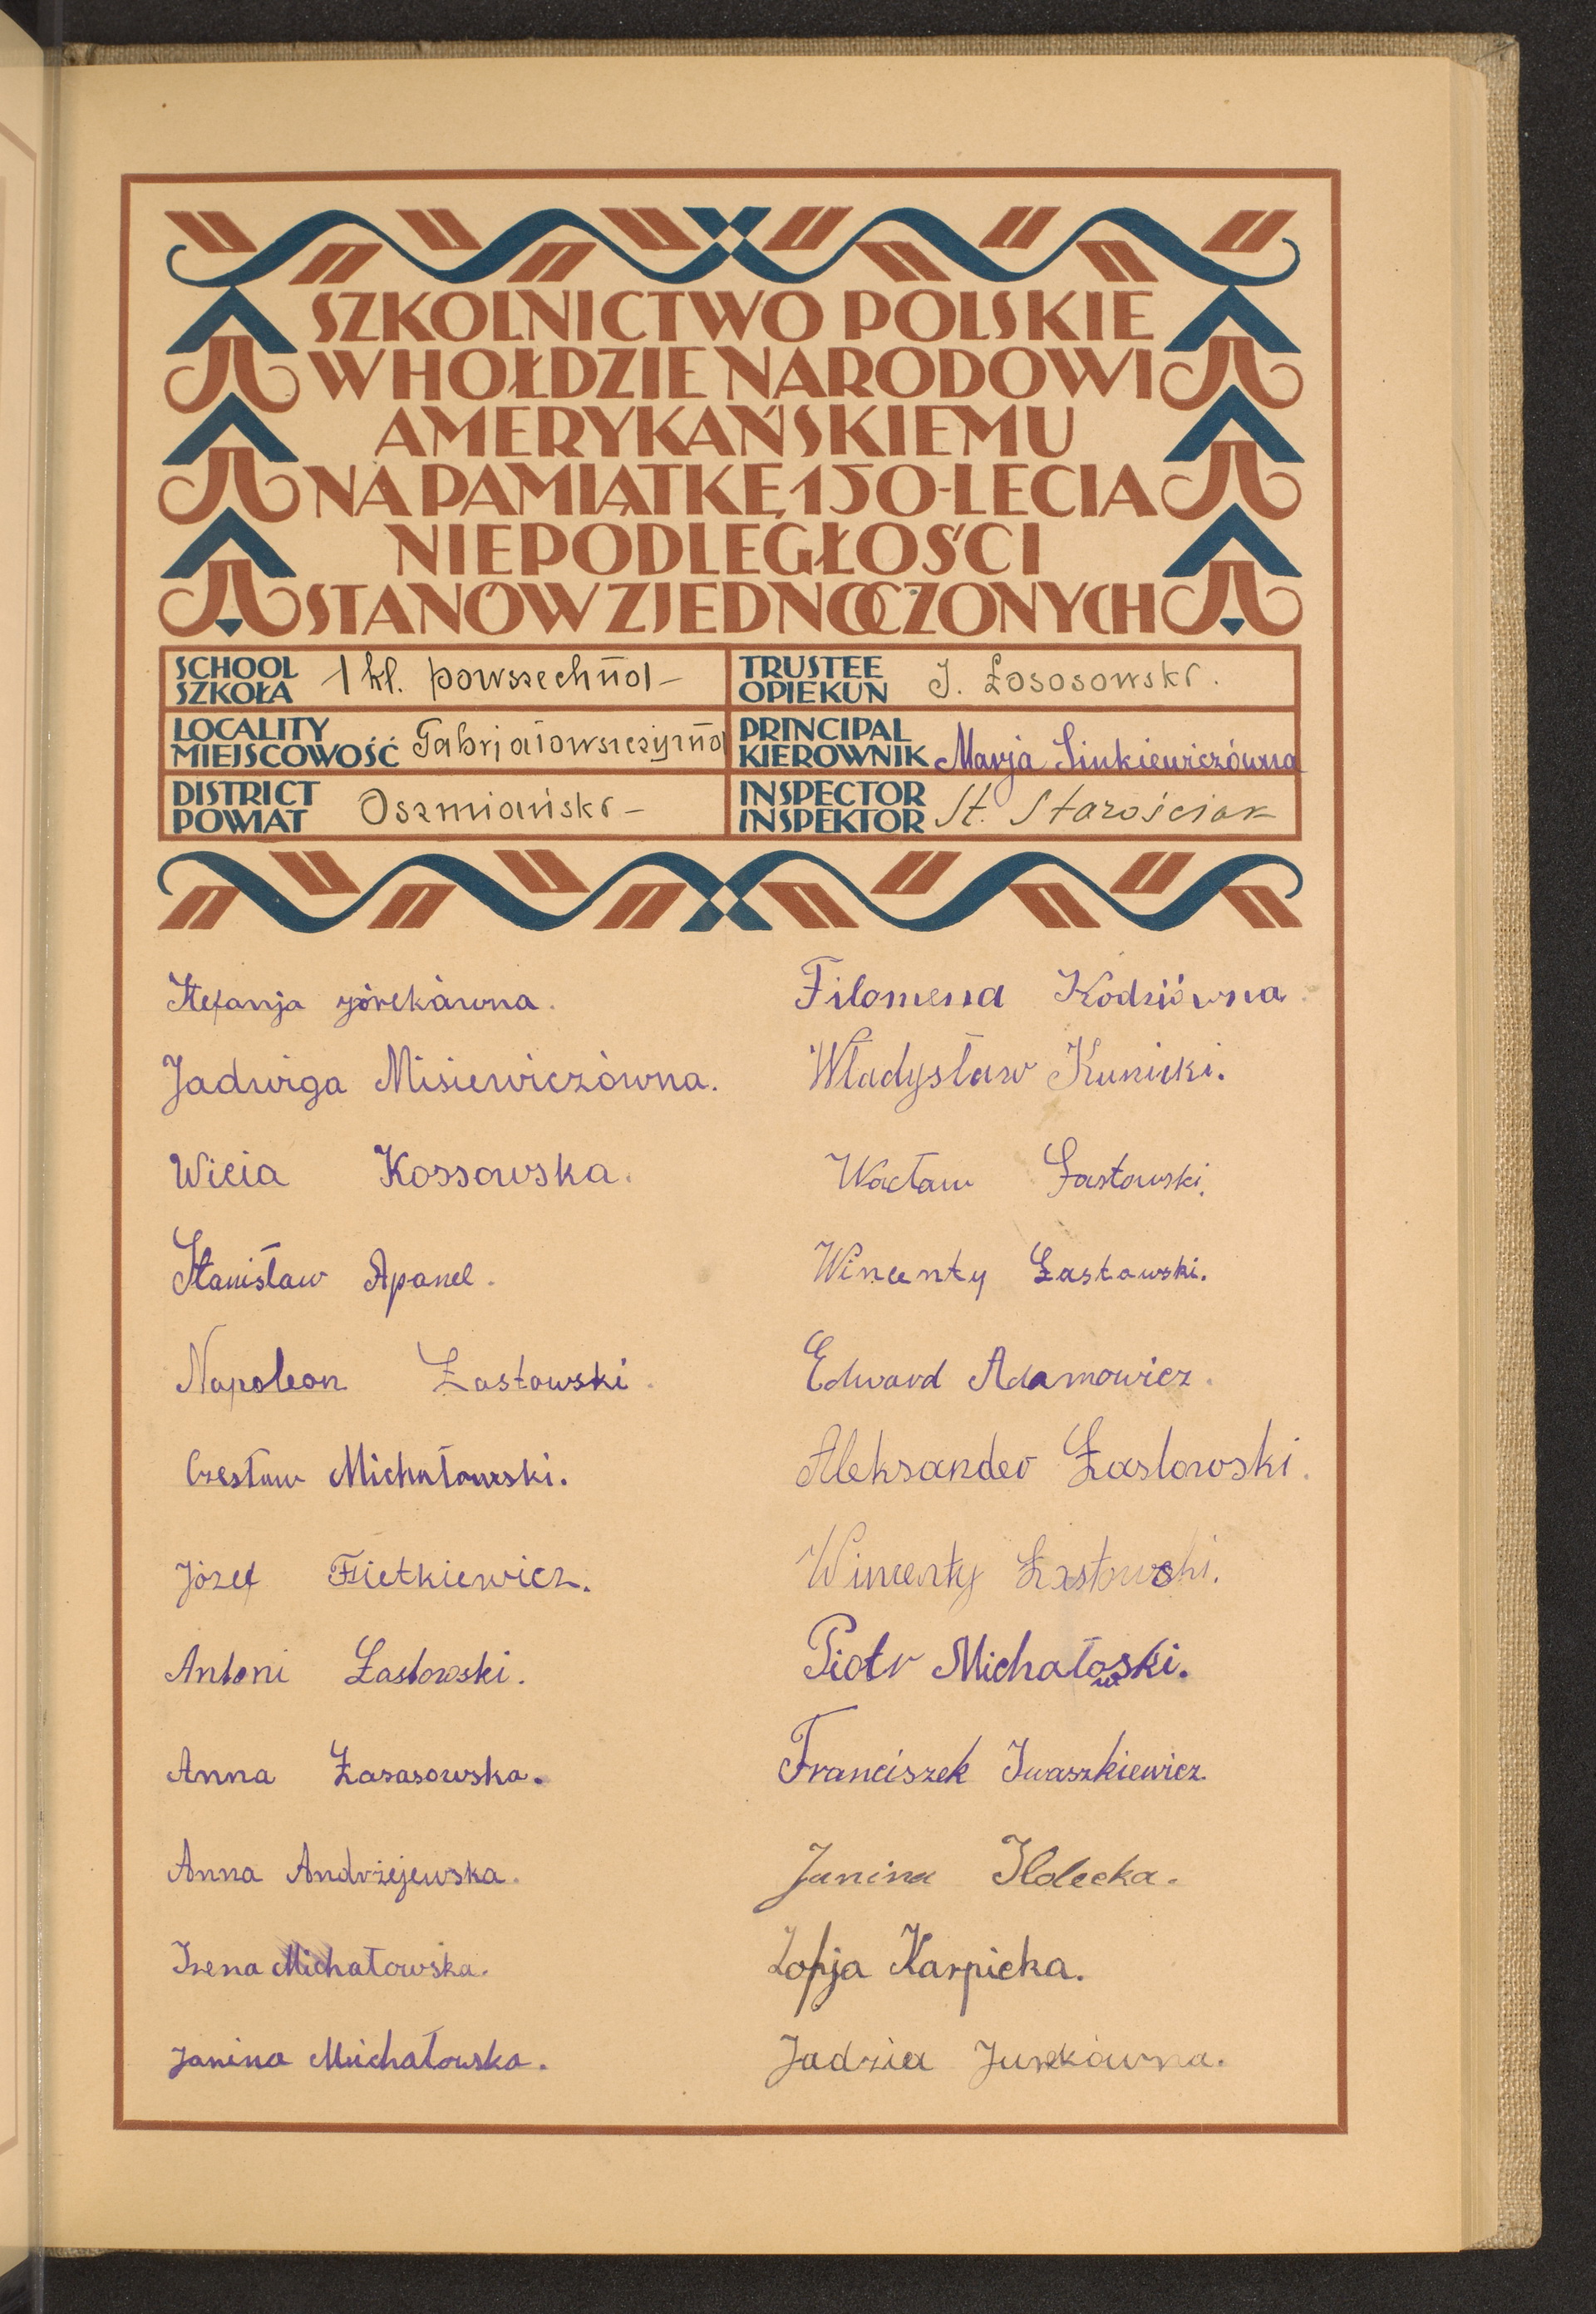 SZKOLNICTWO POLSKIE
W HOŁDZIE NARODOWI
AMERYKAŃSKIEMU
NA PAMIĄTKĘ 150-LECIA
NIEPODLEGŁOŚCI
STANÓW ZJEDNOCZONYCH
SCHOOL
SZKOŁA 1 kl. powszechna
TRUSTEE
OPIEKUN J. Łososowski.
LOCALITY
MIEJSCOWOŚĆ Gabrjałowszczyzna
PRINCIPAL
KIEROWNIK Marja Sinkiewiczówna
DISTRICT
POWIAT Oszmiański
INSPECTOR
INSPEKTOR St. Starościak
Stefanja
Jadwiga Misiewiczówna.
Wicia Kossowska.
Stanisław Apanel.
Napoleon Łastowski.
Czesław Michałowski.
Józef Fietkiewicz.
Antoni Łastowski.
Anna Łasasowska.
Anna Andrzejewska.
Irena Michałowska.
Janina Michałowska.
Filomena Kodziówna.
Władysław Kunicki.
Wacław Łastowski.
Wincenty Łastowski.
Edward Adamowicz.
Aleksander Łastowski.
Wincenty Łastowski.
Piotr Michałowski.
Franciszek Iwaszkiewicz.
Janina
Zofja Karpicka.
Jadzia